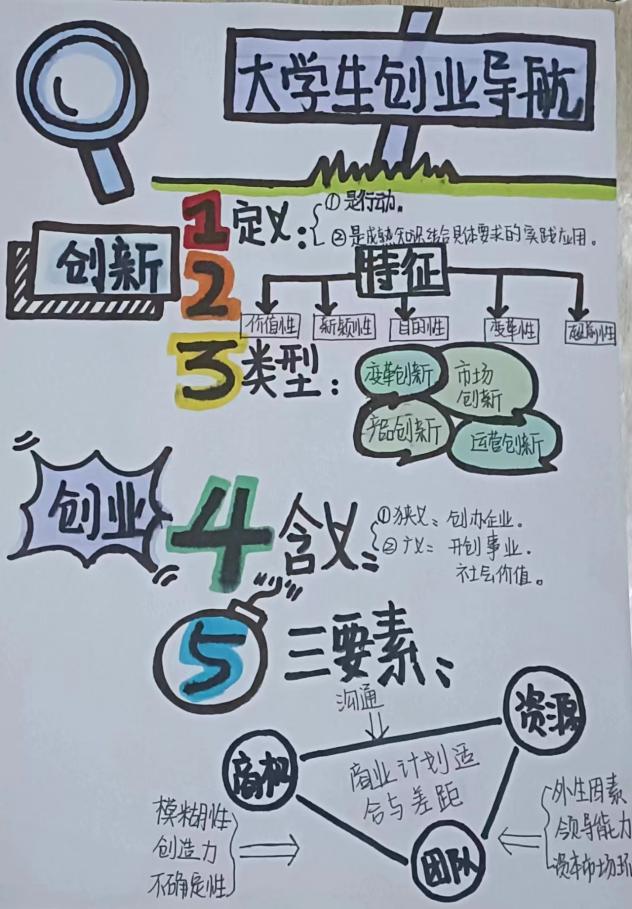 大学生创业导航
创新
1 定义：
①是行动。
②是成熟知识结合具体要求的实践应用。
2 特征
价值性 新颖性 目的性 变革性 超前性
3 类型：
变革创新 市场创新
产品创新 运营创新
创业
4 含义：
①狭义：创办企业。
②广义：开创事业.
社会价值。
5 三要素：
沟通
资源
商机
商业计划适
合与差距
团队
模糊性
创造力
不确定性
外生因素
领导能力
资本市场环